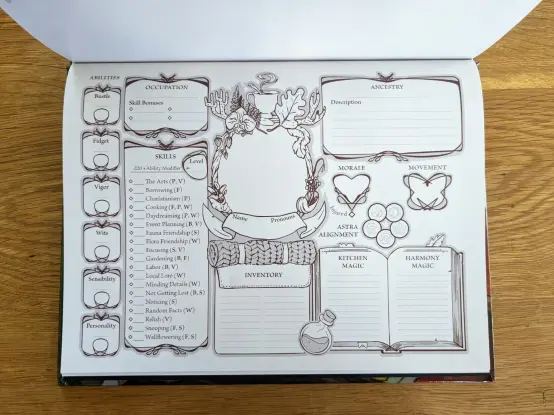 ABILITIES
Bustle
Fidget
Vigor
Wits
Sensibility
Personality
OCCUPATION
Skill Bonuses
SKILLS
Level
d20 + Ability Modifier
The Arts (P, V)
Borrowing (F)
Charistianism (P)
Cooking (F, P, W)
Daydreaming (P, W)
Event Planning (B, V)
Fauna Friendship (S)
Flora Friendship (W)
Focusing (S, V)
Gardening (B, F)
Labor (B, V)
Local Lore (W)
Minding Details (W)
Not Getting Lost (B, S)
Noticing (S)
Random Facts (W)
Relish (V)
Snooping (F, S)
Wallflowering (F, S)
Name
Pronouns
INVENTORY
ANCESTRY
Description
MORALE
MOVEMENT
Speed
ASTRA
ALIGNMENT
KITCHEN
MAGIC
HARMONY
MAGIC